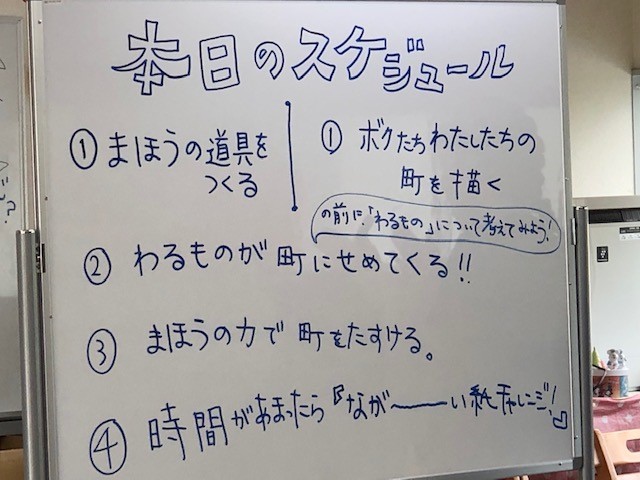 本日のスケジュール
① まほうの道具を
つくる
① ボクたちわたしたちの
町を描く
の前に「わるもの」について考えてみよう!
② わるものが町にせめてくる!!
③ まほうの力で町をたすける。
④ 時間があまったら『なが――い紙チャレンジ!』